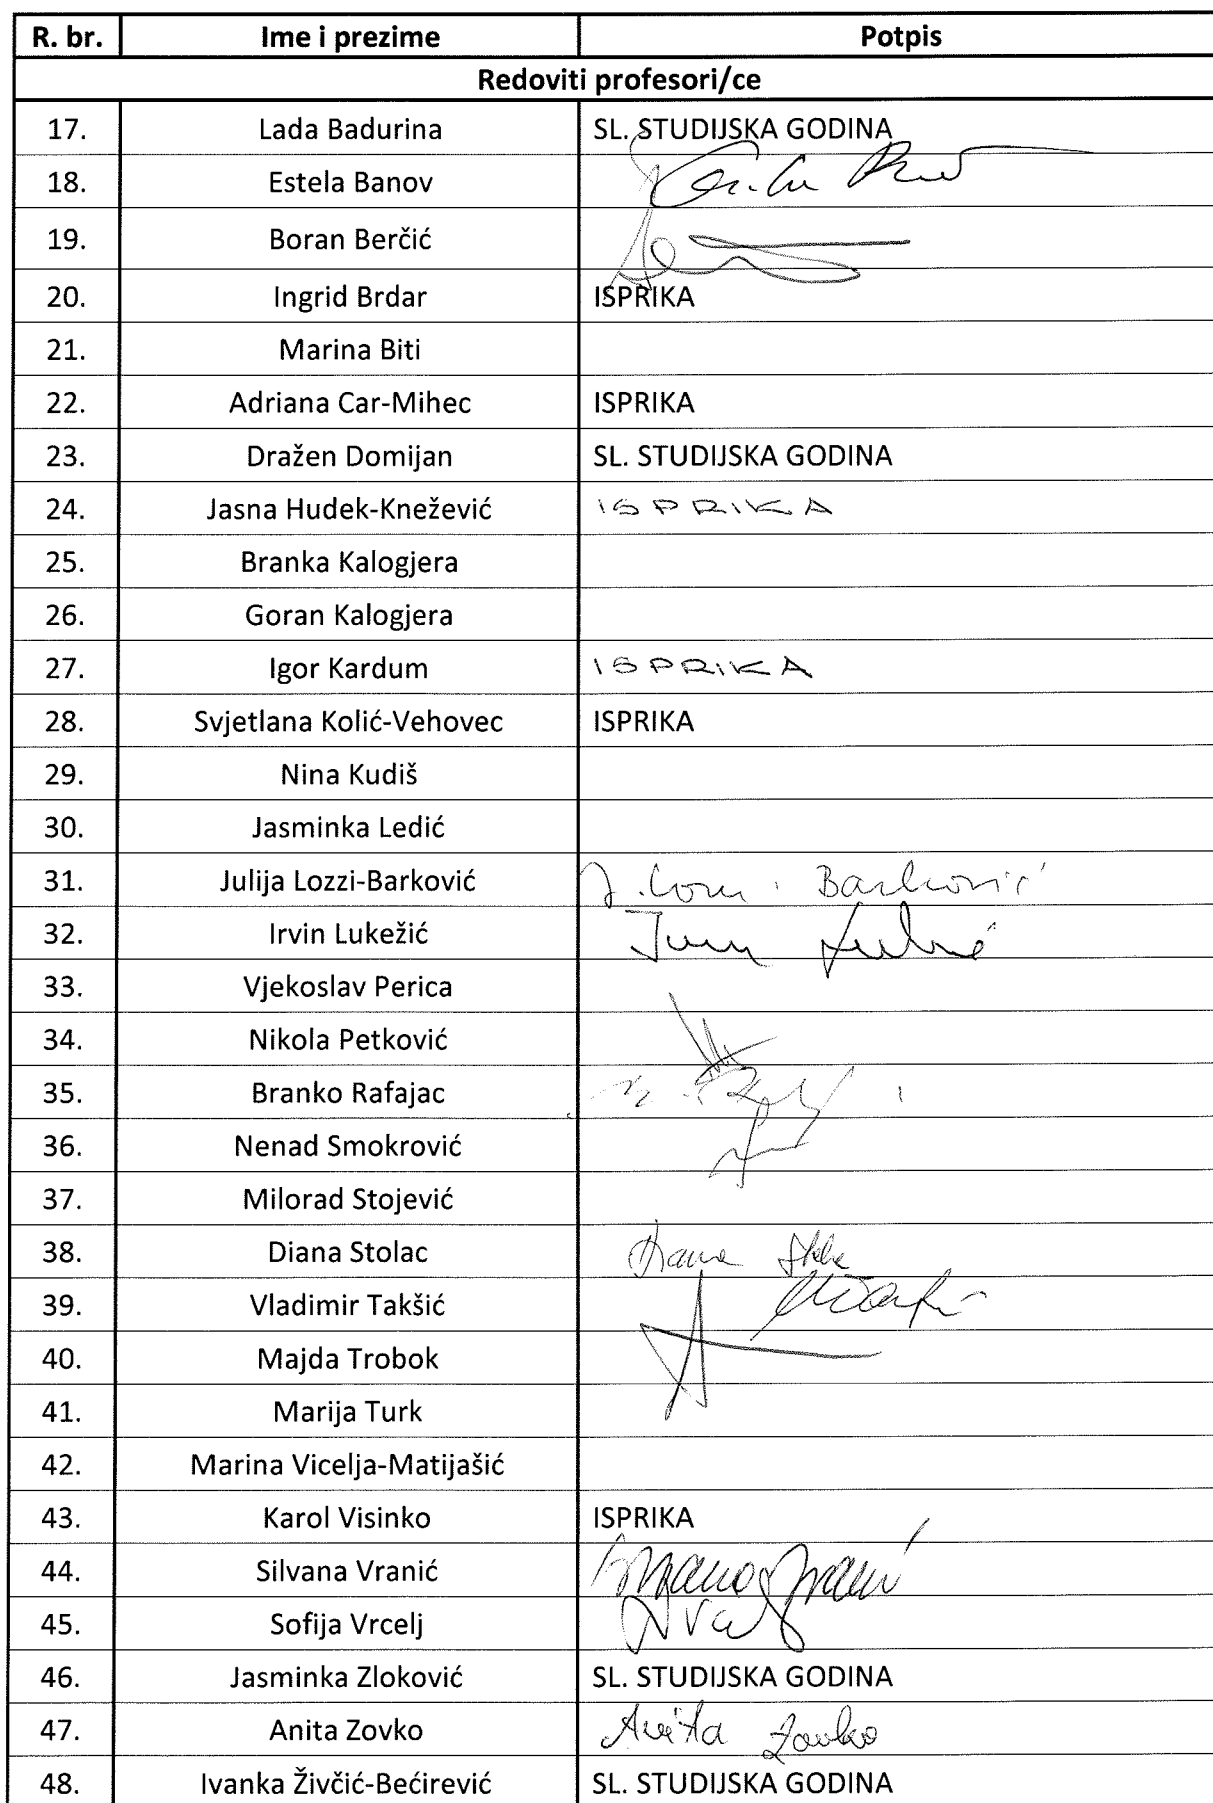 R. br. Ime i prezime Potpis
Redoviti profesori/ce
17. Lada Badurina SL. STUDIJSKA GODINA
18. Estela Banov
19. Boran Berčić
20. Ingrid Brdar ISPRIKA
21. Marina Biti
22. Adriana Car-Mihec ISPRIKA
23. Dražen Domijan SL. STUDIJSKA GODINA
24. Jasna Hudek-Knežević ISPRIKA
25. Branka Kalogjera
26. Goran Kalogjera
27. Igor Kardum ISPRIKA
28. Svjetlana Kolić-Vehovec ISPRIKA
29. Nina Kudiš
30. Jasminka Ledić
31. Julija Lozzi-Barković J. Lozzi - Barković
32. Irvin Lukežić
33. Vjekoslav Perica
34. Nikola Petković
35. Branko Rafajac
36. Nenad Smokrović
37. Milorad Stojević
38. Diana Stolac
39. Vladimir Takšić
40. Majda Trobok
41. Marija Turk
42. Marina Vicelja-Matijašić
43. Karol Visinko ISPRIKA
44. Silvana Vranić Silvana Vranić
45. Sofija Vrcelj
46. Jasminka Zloković SL. STUDIJSKA GODINA
47. Anita Zovko Anita Zovko
48. Ivanka Živčić-Bećirević SL. STUDIJSKA GODINA